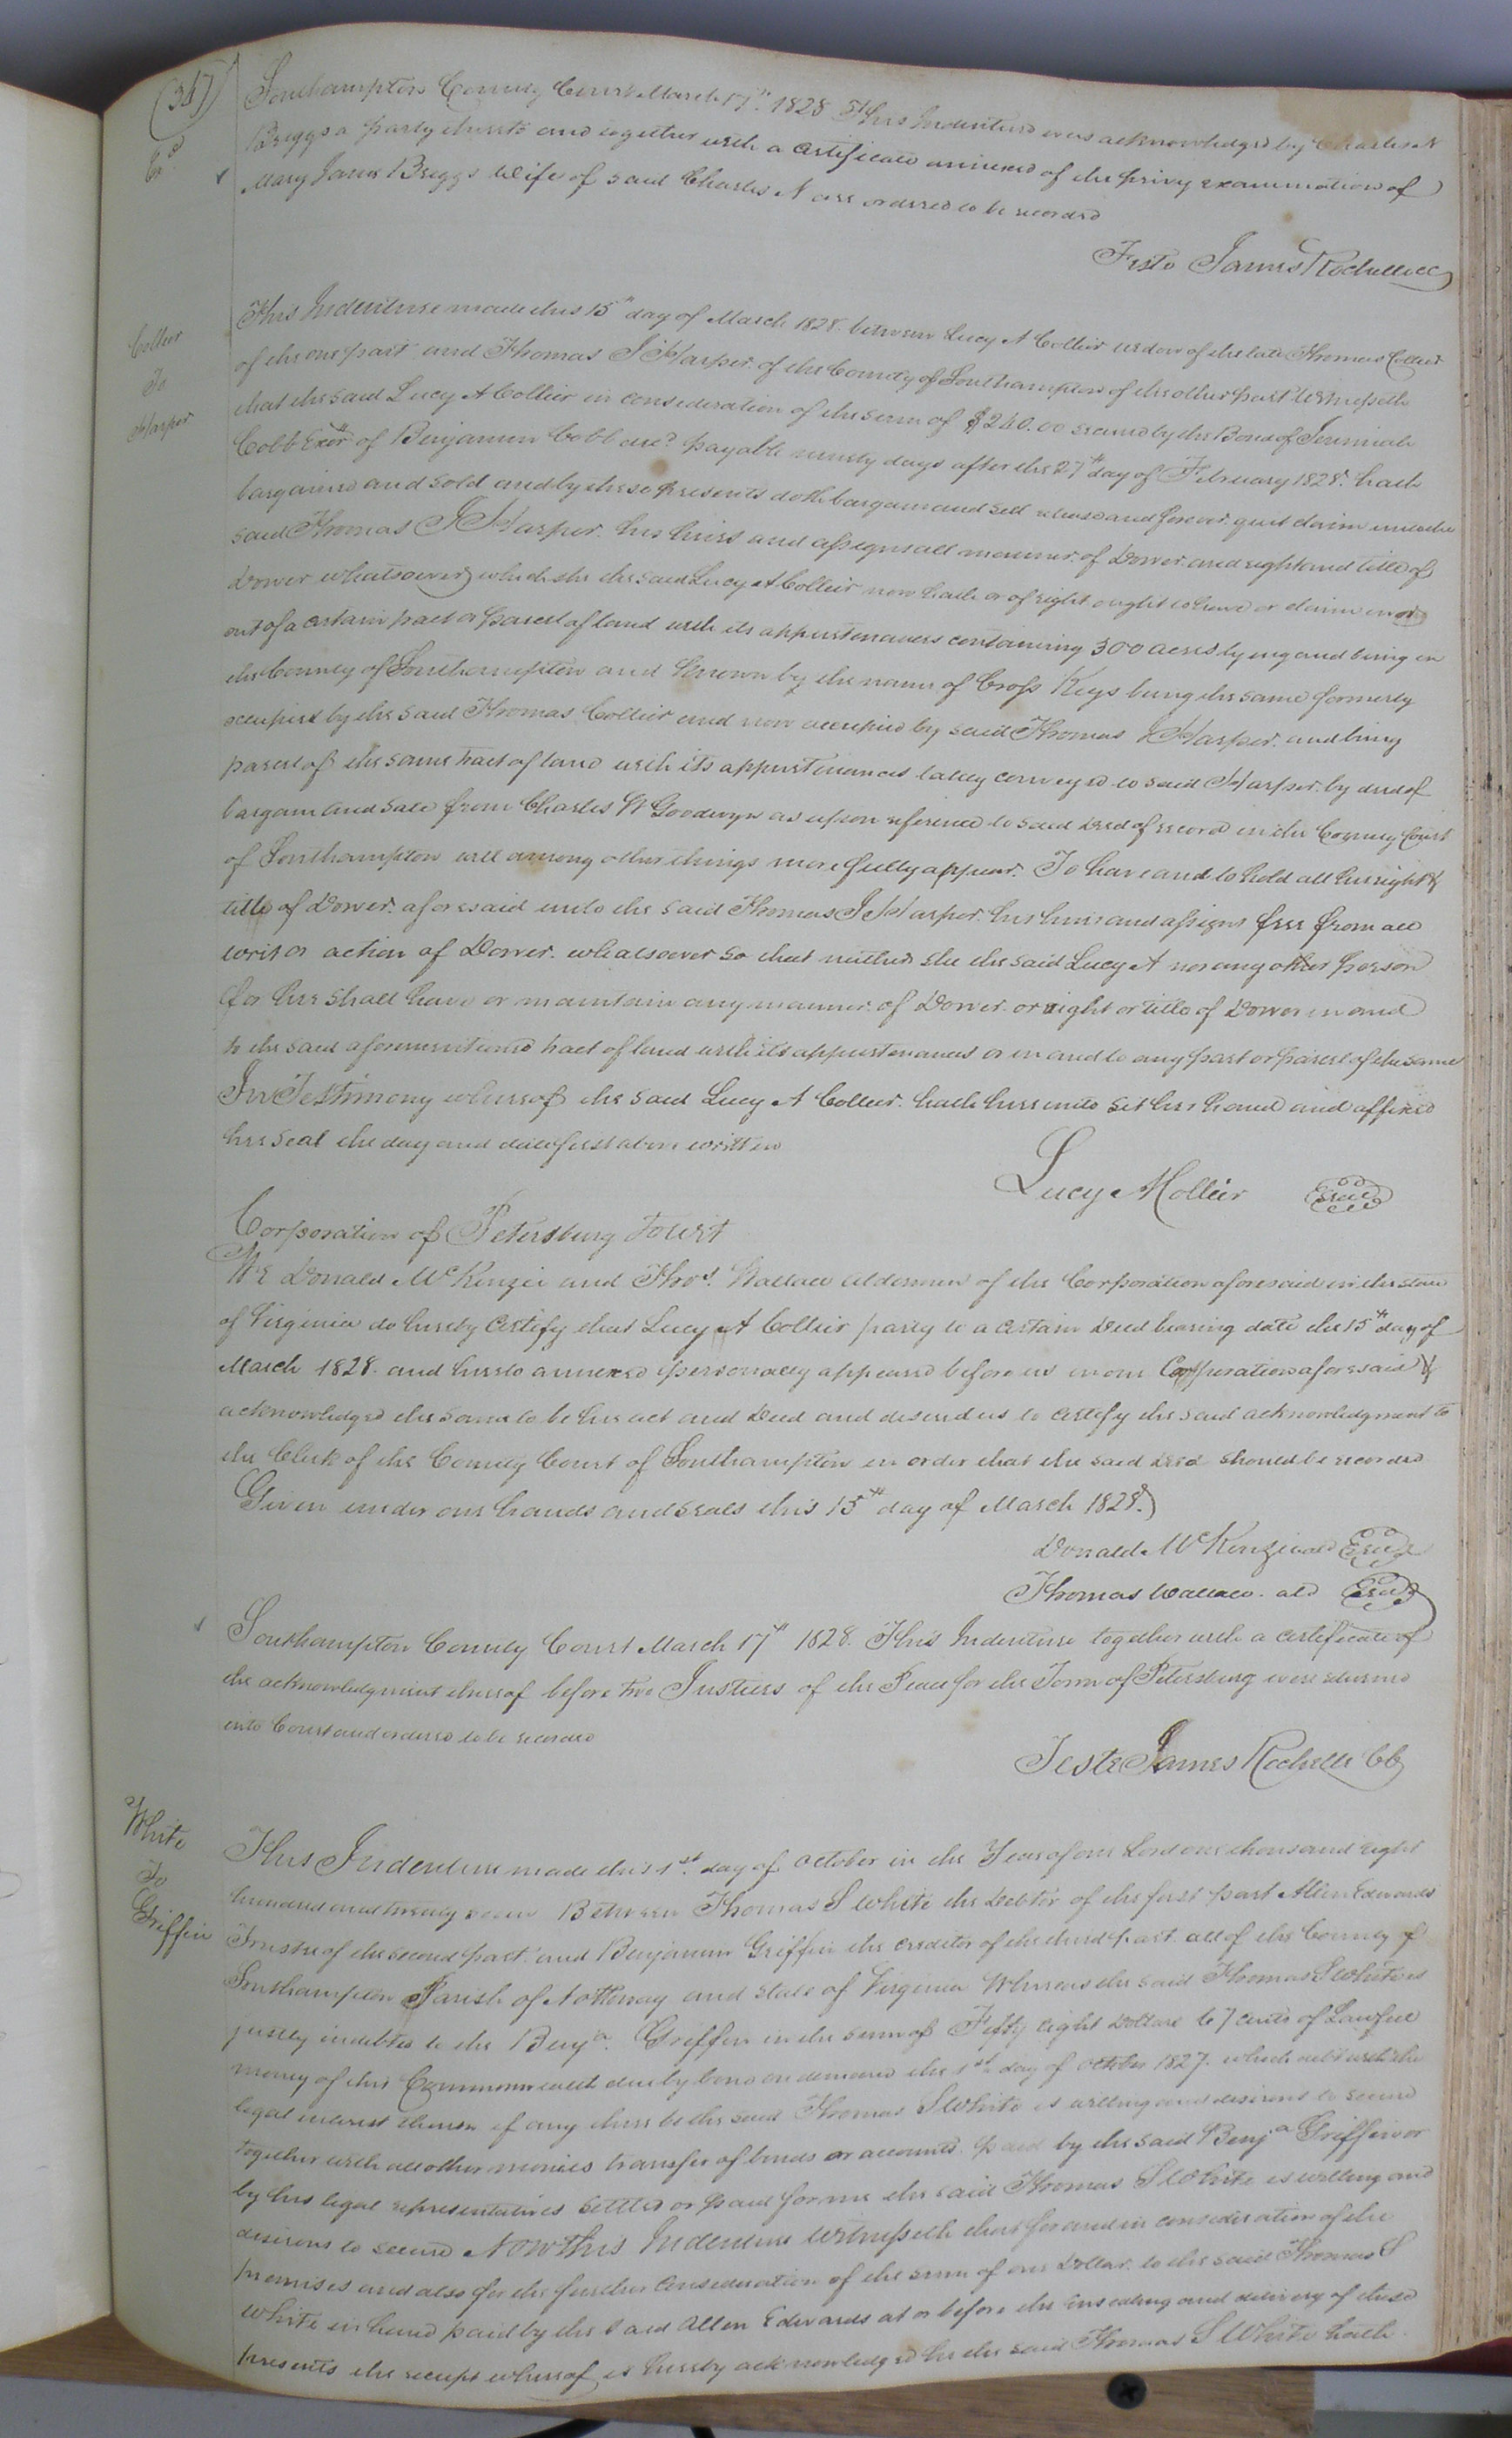 (347)
Southampton County Court March 17th 1828 This Indenture was acknowledged by Charles N
Briggs a party thereto and together with a certificate annexed of the privy examination of
Mary Jane Briggs Wife of said Charles N are ordered to be recorded
Teste James Rochelle cc
Collier
To
Harper
This Indenture made this 15th day of March 1828. between Lucy A Collier widow of the late Thomas Collier
of the one part and Thomas J Harper of the County of Southampton of the other part Witnesseth
that the said Lucy A Collier in consideration of the sum of $240.00 secured by the Bond of Jeremiah
Cobb Exor of Benjamin Cobb decd payable ninety days after the 27th day of February 1828. hath
bargained and sold and by these presents doth bargain and sell release and forever quit claim unto the
said Thomas J Harper his heirs and assigns all manner of Dower and right and title of
Dower whatsoever which she the said Lucy A Collier now hath or of right ought to have or claim in or
out of a certain tract or parcel of land with its appurtenances containing 300 acres lying and being in
the County of Southampton and known by the name of Cross Keys being the same formerly
occupied by the said Thomas Collier and now occupied by said Thomas J Harper and being
parcel of the same tract of land with its appurtenances lately conveyed to said Harper by deed of
bargain and sale from Charles W Goodwyn as upon reference to said deed of record in the County Court
of Southampton will among other things more fully appear. To have and to hold all her right &
title of Dower aforesaid unto the said Thomas J Harper his heirs and assigns free from all
writ or action of Dower whatsoever so that neither she the said Lucy A nor any other person
for her shall have or maintain any manner of Dower or right or title of Dower in and
to the said aforementioned tract of land with its appurtenances or in and to any part or parcel of the same
In Testimony whereof the said Lucy A Collier hath hereunto set her hand and affixed
her seal the day and date first above written
Lucy A Collier Seal
Corporation of Petersburg Towit
We Donald McKenzie and Thos. Wallace aldermen of the Corporation aforesaid in the state
of Virginia do hereby certify that Lucy A Collier party to a certain Deed bearing date the 15th day of
March 1828. and hereto annexed personally appeared before us in our Corporation aforesaid &
acknowledged the same to be her act and Deed and desired us to certify the said acknowledgment to
the Clerk of the County Court of Southampton in order that the said deed should be recorded
Given under our hands and seals this 15th day of March 1828.
Donald McKenzie ald Seal
Thomas Wallace ald Seal
Southampton County Court March 17th 1828. This Indenture together with a certificate of
the acknowledgment thereof before two Justices of the Peace for the Town of Petersburg were returned
into Court and ordered to be recorded
Teste James Rochelle CC
White
To
Griffin
This Indenture made this 1st day of October in the Year of our Lord one thousand eight
hundred and twenty seven Between Thomas S White the Debtor of the first part Allen Edwards
Trustee of the second part and Benjamin Griffin the creditor of the third part all of the County of
Southampton Parish of Nottoway and State of Virginia Whereas the said Thomas S White is
justly indebted to the Benja. Griffin in the sum of Fifty eight Dollars 67 cents of Lawful
money of this Commonwealth due by bond on demand the 1st day of October 1827. which debt with the
legal interest thereon if any there be the said Thomas S White is willing and desirous to secure
together with all other monies transfer of bonds or accounts paid by the said Benja Griffin or
by his legal representatives settled or paid for me the said Thomas S White is willing and
desirous to secure Now this Indenture Witnesseth that for and in consideration of the
premises and also for the further consideration of the sum of one Dollar to the said Thomas S
White in hand paid by the said Allen Edwards at or before the ensealing and delivery of these
presents the receipt whereof is hereby acknowledged he the said Thomas S White hath